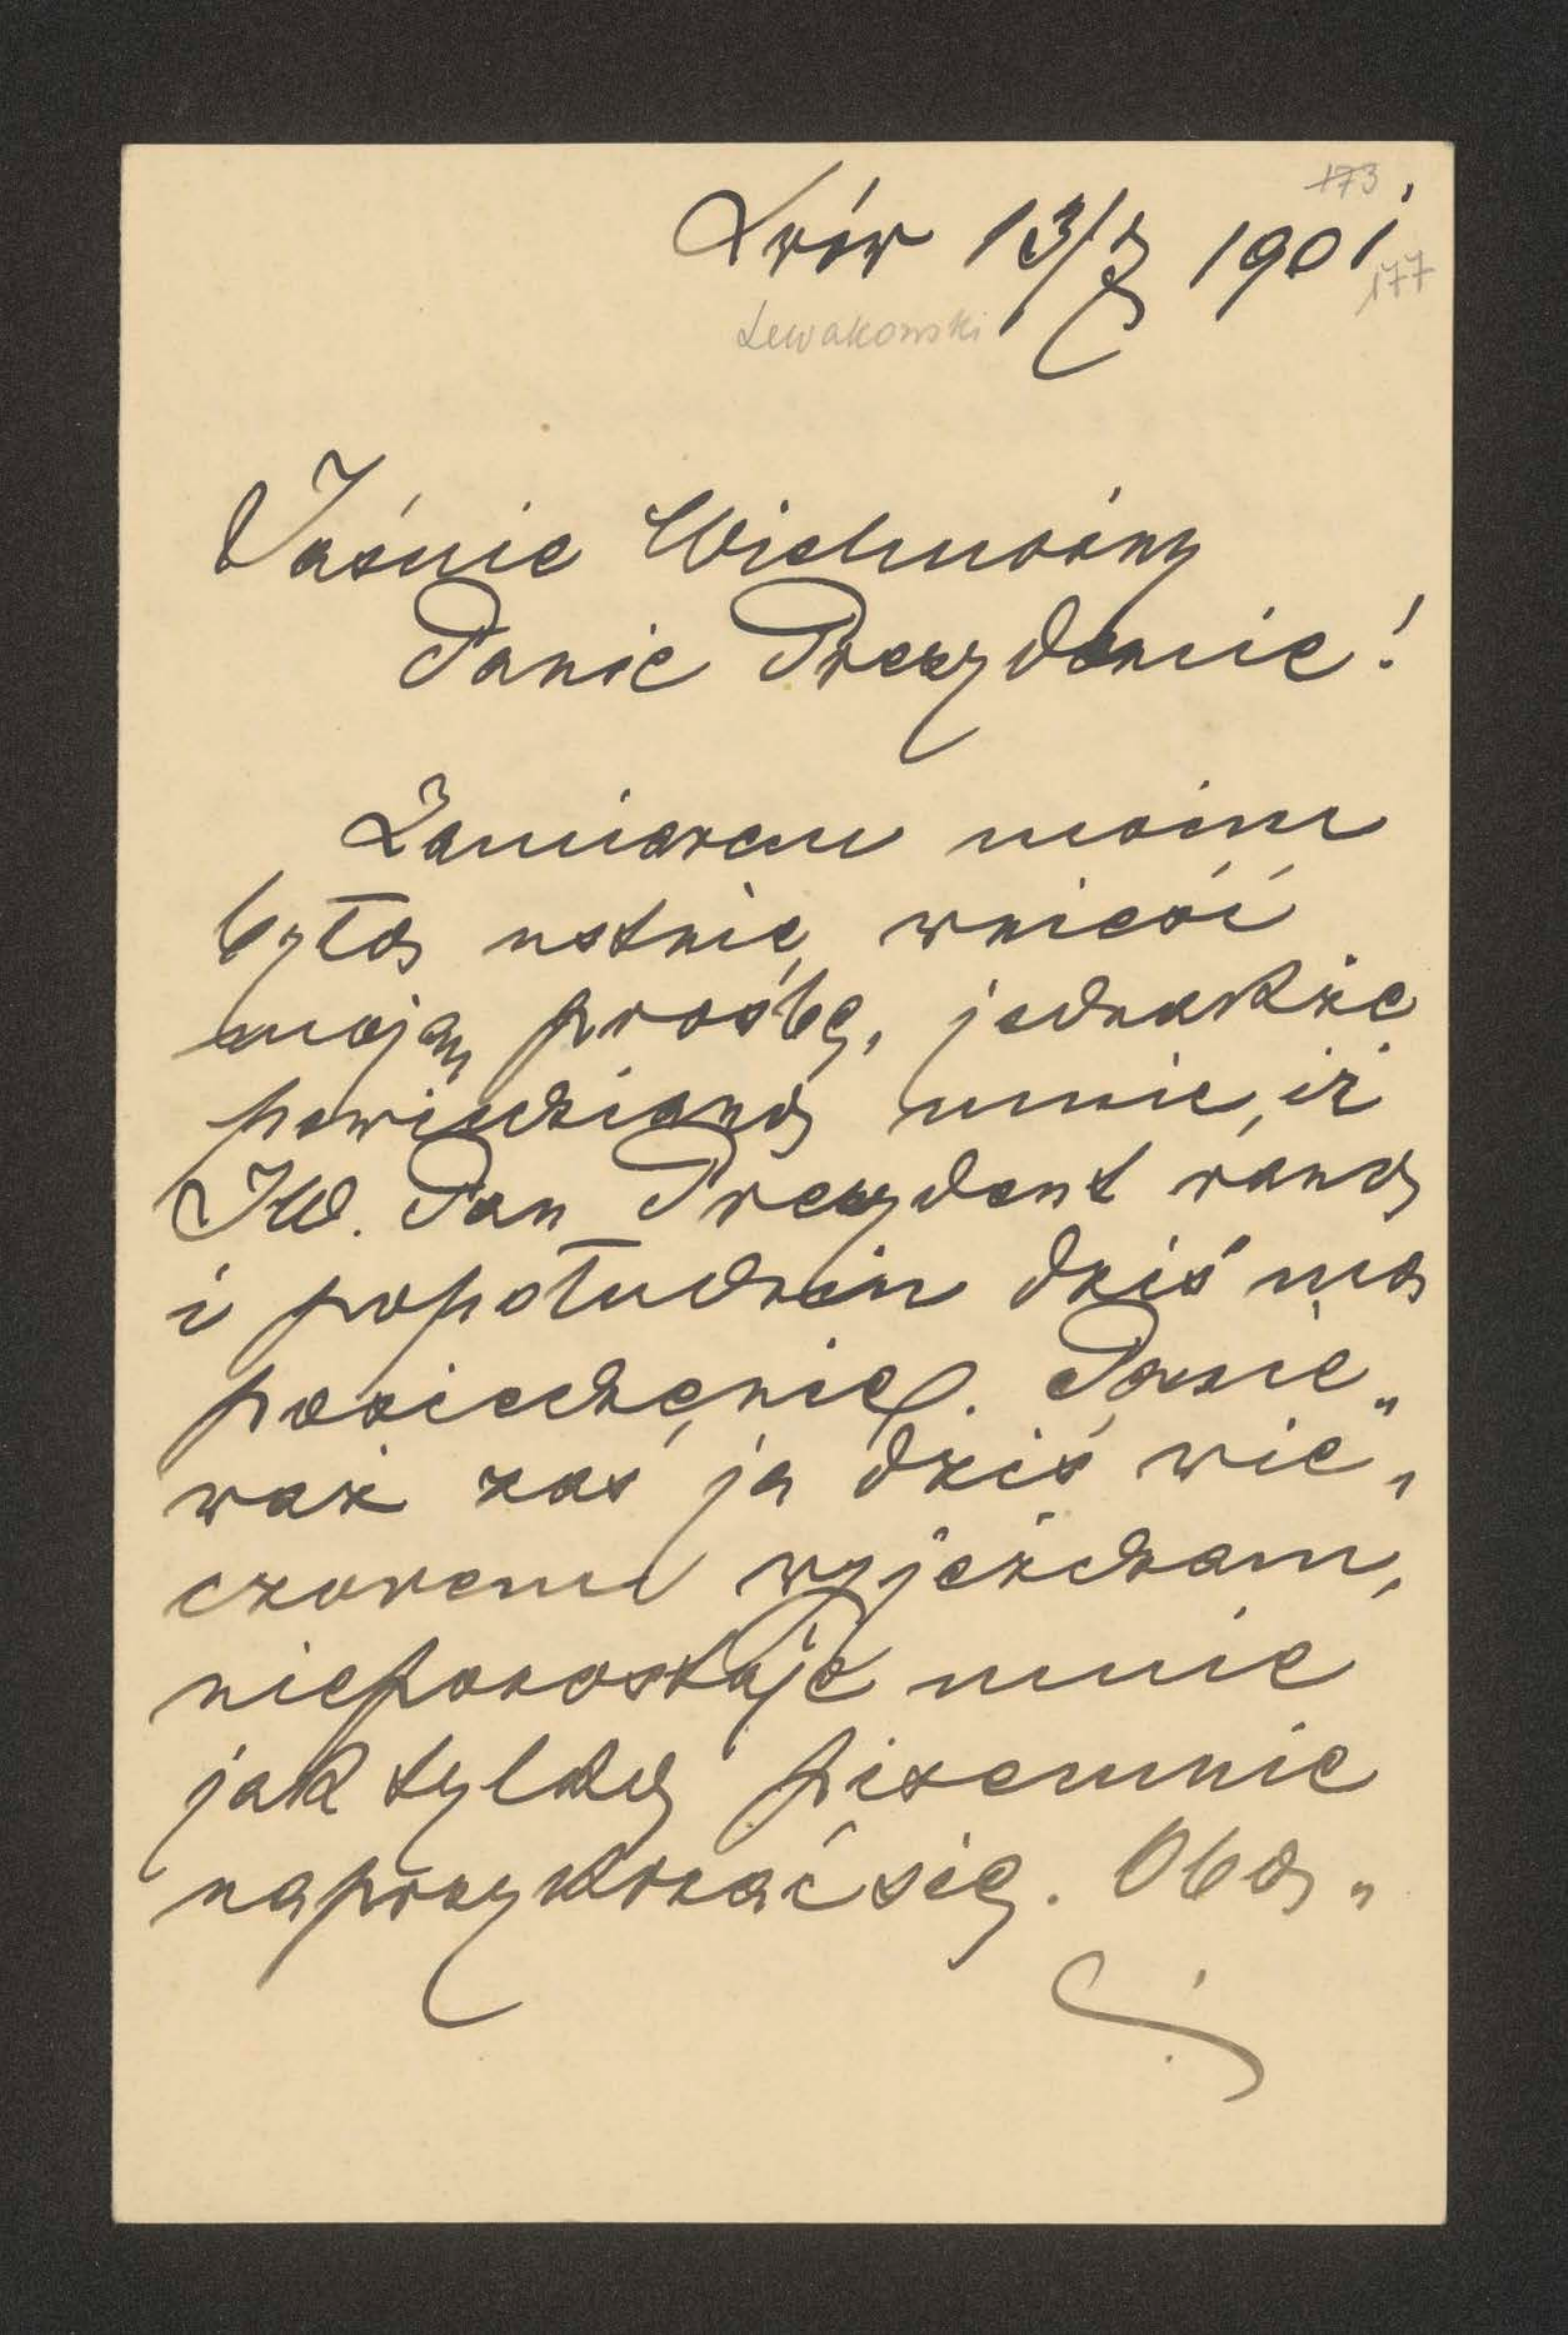 173
Lwów 13/3 1901
177
Lewakowski
Jaśnie Wielmożny
Panie Prezydencie!
Zamiarem moim
było ustnie wnieść
moją prośbę, jednakże
powiedziano mnie, iż
JW. Pan Prezydent rano
i popołudniu dziś ma
posiedzenie. Ponie„
waż zaś ja dziś wie„
czorem wyjeżdżam,
niepozostaje mnie
jak tylko pisemnie
naprzykrzać się. Obo„